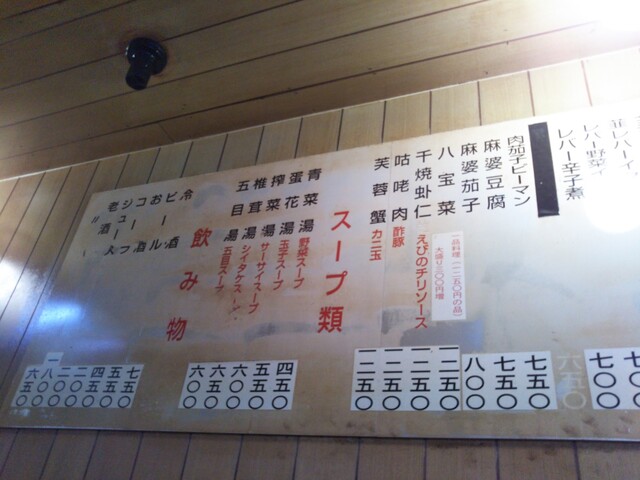 レバー辛子煮
七〇〇
肉茄子ピーマン
七五〇
麻婆豆腐
七五〇
麻婆茄子
八〇〇
八宝菜
一二五〇
一品料理(一二五〇円の品)
大盛り三〇〇円増
干焼虾仁 えびのチリソース
一二五〇
咕咾肉 酢豚
一二五〇
芙蓉蟹 カニ玉
一二五〇
スープ類
青菜湯 野菜スープ
四五〇
蛋花湯 玉子スープ
五五〇
搾菜湯 サーサイスープ
六〇〇
椎茸湯 シイタケスープ
六五〇
五目湯 五目スープ
六〇〇
飲み物
冷酒
七五〇
ビール
五五〇
お酒
四五〇
コーラ
二〇〇
ジュース
二〇〇
老酒
一八〇〇
六五〇